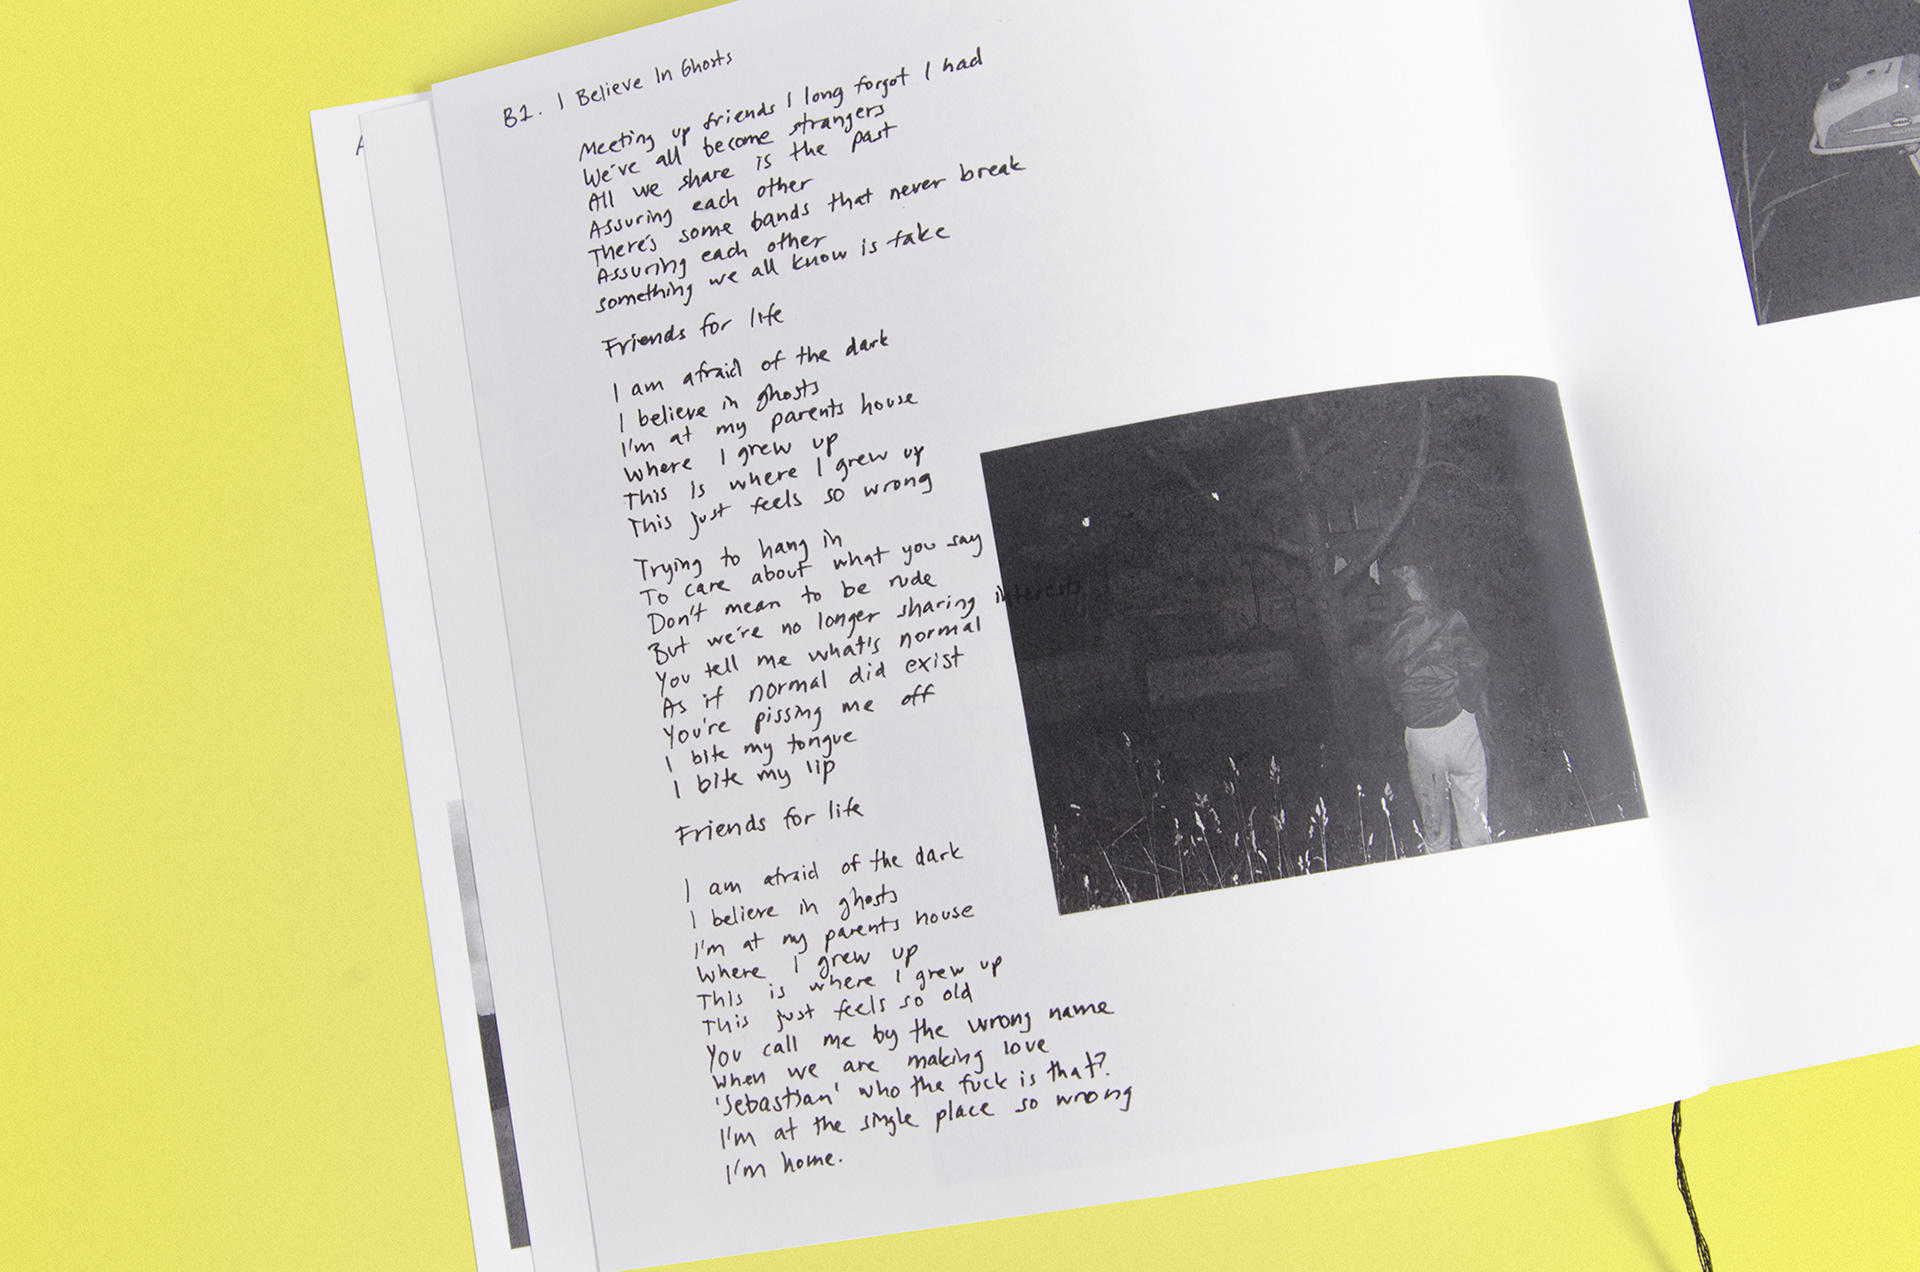 B1. I Believe In Ghosts
Meeting up friends I long forgot I had
We've all become strangers
All we share is the past
Assuring each other
There's some bands that never break
Assuring each other
something we all know is fake
Friends for life
I am afraid of the dark
I believe in ghosts
I'm at my parents house
Where I grew up
This is where I grew up
This just feels so wrong
Trying to hang in
To care about what you say
Don't mean to be rude
But we're no longer sharing interests
You tell me what's normal
As if normal did exist
You're pissing me off
I bite my tongue
I bite my lip
Friends for life
I am afraid of the dark
I believe in ghosts
I'm at my parents house
Where I grew up
This is where I grew up
This just feels so old
You call me by the wrong name
When we are making love
'Sebastian' who the fuck is that?
I'm at the single place so wrong
I'm home.